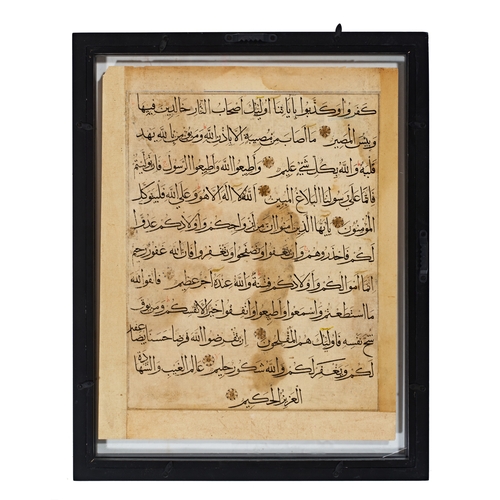 كفروا وكذبوا بآياتنا أولئك أصحاب النار خالدين فيها
وبئس المصير ما أصاب من مصيبة إلا بإذن الله ومن يؤمن بالله يهد
قلبه والله بكل شيء عليم وأطيعوا الله وأطيعوا الرسول فإن توليتم
فإنما على رسولنا البلاغ المبين الله لا إله إلا هو وعلى الله فليتوكل
المؤمنون يا أيها الذين آمنوا إن من أزواجكم وأولادكم عدوا
لكم فاحذروهم وإن تعفوا وتصفحوا وتغفروا فإن الله غفور رحيم
إنما أموالكم وأولادكم فتنة والله عنده أجر عظيم فاتقوا الله
ما استطعتم واسمعوا وأطيعوا وأنفقوا خيرا لأنفسكم ومن يوق
شح نفسه فأولئك هم المفلحون إن تقرضوا الله قرضا حسنا يضاعفه
لكم ويغفر لكم والله شكور حليم عالم الغيب والشهادة
العزيز الحكيم